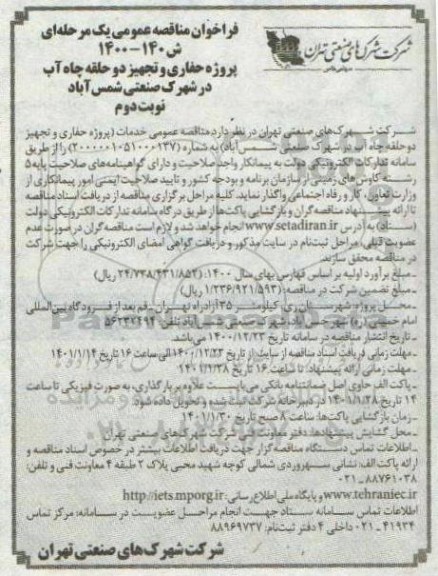 شرکت شهرک‌های صنعتی تهران
فراخوان مناقصه عمومی یک مرحله‌ای
ش ۱۴۰-۱۴۰۰
پروژه حفاری و تجهیز دو حلقه چاه آب
در شهرک صنعتی شمس آباد
نوبت دوم
شرکت شهرک‌های صنعتی تهران در نظر دارد مناقصه عمومی خدمات (پروژه حفاری و تجهیز
دو حلقه چاه آب در شهرک صنعتی شمس‌آباد) به شماره (۲۰۰۰۰۰۱۰۵۱۰۰۰۱۳۷) را از طریق
سامانه تدارکات الکترونیکی دولت به پیمانکار واجد صلاحیت و دارای گواهینامه‌های صلاحیت پایه ۵
رشته کاوش‌های زمینی از سازمان برنامه و بودجه کشور و تایید صلاحیت ایمنی امور پیمانکاری از
وزارت تعاون، کار و رفاه اجتماعی واگذار نماید. کلیه مراحل برگزاری مناقصه از دریافت اسناد مناقصه
تا ارائه پیشنهاد مناقصه‌گران و بازگشایی پاکت‌ها از طریق درگاه سامانه تدارکات الکترونیکی دولت
(ستاد) به آدرس www.setadiran.ir انجام خواهد شد و لازم است مناقصه‌گران در صورت عدم
عضویت قبلی، مراحل ثبت‌نام در سایت مذکور و دریافت گواهی امضای الکترونیکی را جهت شرکت
در مناقصه محقق سازند.
ـ مبلغ برآورد اولیه بر اساس فهارس بهای سال ۱۴۰۰: (۲۴/۷۳۸/۴۳۱/۸۵۲ ریال)
ـ مبلغ تضمین شرکت در مناقصه: (۱/۲۳۶/۹۲۱/۵۹۳ ریال)
ـ محل پروژه: شهرستان ری، کیلومتر ۳۵ آزادراه تهران ـ قم بعد از فرودگاه بین‌المللی
امام خمینی (ره) شهر حسن آباد، شهرک صنعتی شمس آباد تلفن: ۵۶۲۳۲۴۹۴
ـ تاریخ انتشار مناقصه در سامانه تاریخ ۱۴۰۰/۱۲/۲۳ می‌باشد.
ـ مهلت زمانی دریافت اسناد مناقصه از سایت: از تاریخ ۱۴۰۰/۱۲/۲۳ الی ساعت ۱۶ تاریخ ۱۴۰۱/۱/۱۴
ـ مهلت زمانی ارائه پیشنهاد: تا ساعت ۱۶ تاریخ ۱۴۰۱/۱/۲۸
ـ پاکت الف حاوی اصل ضمانتنامه بانکی می‌بایست علاوه بر بارگذاری، به صورت فیزیکی تا ساعت
۱۴ تاریخ ۱۴۰۱/۱/۲۸ در دبیرخانه شرکت ثبت شده و تحویل داده شود.
ـ زمان بازگشایی پاکت‌ها: ساعت ۸ صبح تاریخ ۱۴۰۱/۱/۳۰
ـ محل گشایش پیشنهادها: دفتر معاونت فنی شرکت شهرک‌های صنعتی تهران
ـ اطلاعات تماس دستگاه مناقصه‌گزار جهت دریافت اطلاعات بیشتر در خصوص اسناد مناقصه و
ارائه پاکت الف: نشانی سهروردی شمالی کوچه شهید محبی پلاک ۲ طبقه ۴ معاونت فنی و تلفن:
۸۸۷۶۱۰۳۸ـ۰۲۱
www.tehraniec.ir و پایگاه ملی اطلاع رسانی: http://iets.mporg.ir
اطلاعات تماس سامانه ستاد جهت انجام مراحل عضویت در سامانه: مرکز تماس
۴۱۹۳۴ـ۰۲۱ داخلی ۴ دفتر ثبت‌نام: ۸۸۹۶۹۷۳۷
شرکت شهرک های صنعتی تهران